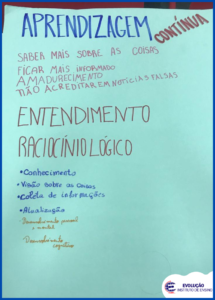 APRENDIZAGEM
CONTÍNUA
SABER MAIS SOBRE AS COISAS
FICAR MAIS INFORMADO
AMADURECIMENTO
NÃO ACREDITAR EM NOTÍCIAS FALSAS
ENTENDIMENTO
RACIOCÍNIO LÓGICO
• Conhecimento
• Visão sobre as coisas
• Coleta de informações
• Atualização
• Desenvolvimento pessoal
e mental
Desenvolvimento
cognitivo
EVOLUÇÃO